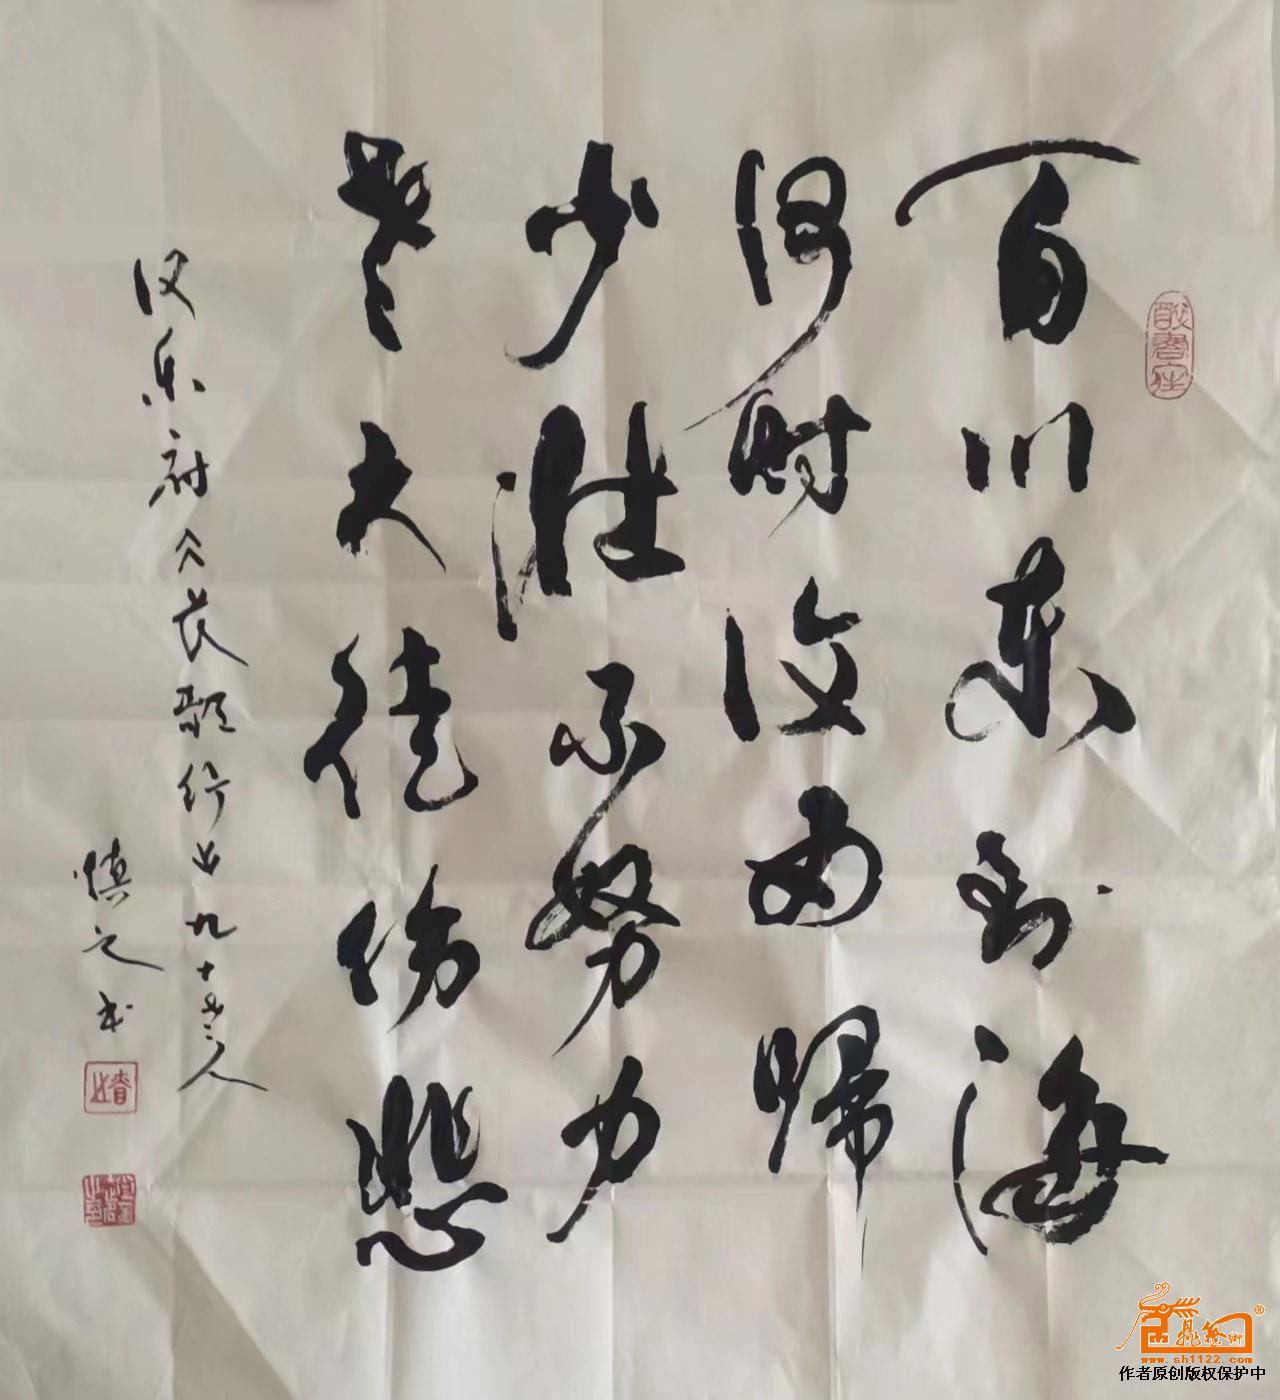 百川東到海
何时復西歸
少壮不努力
老大徒伤悲
汉乐府长歌行 九十老人
慎之书
®
www.sh1122.com
作者原创版权保护中